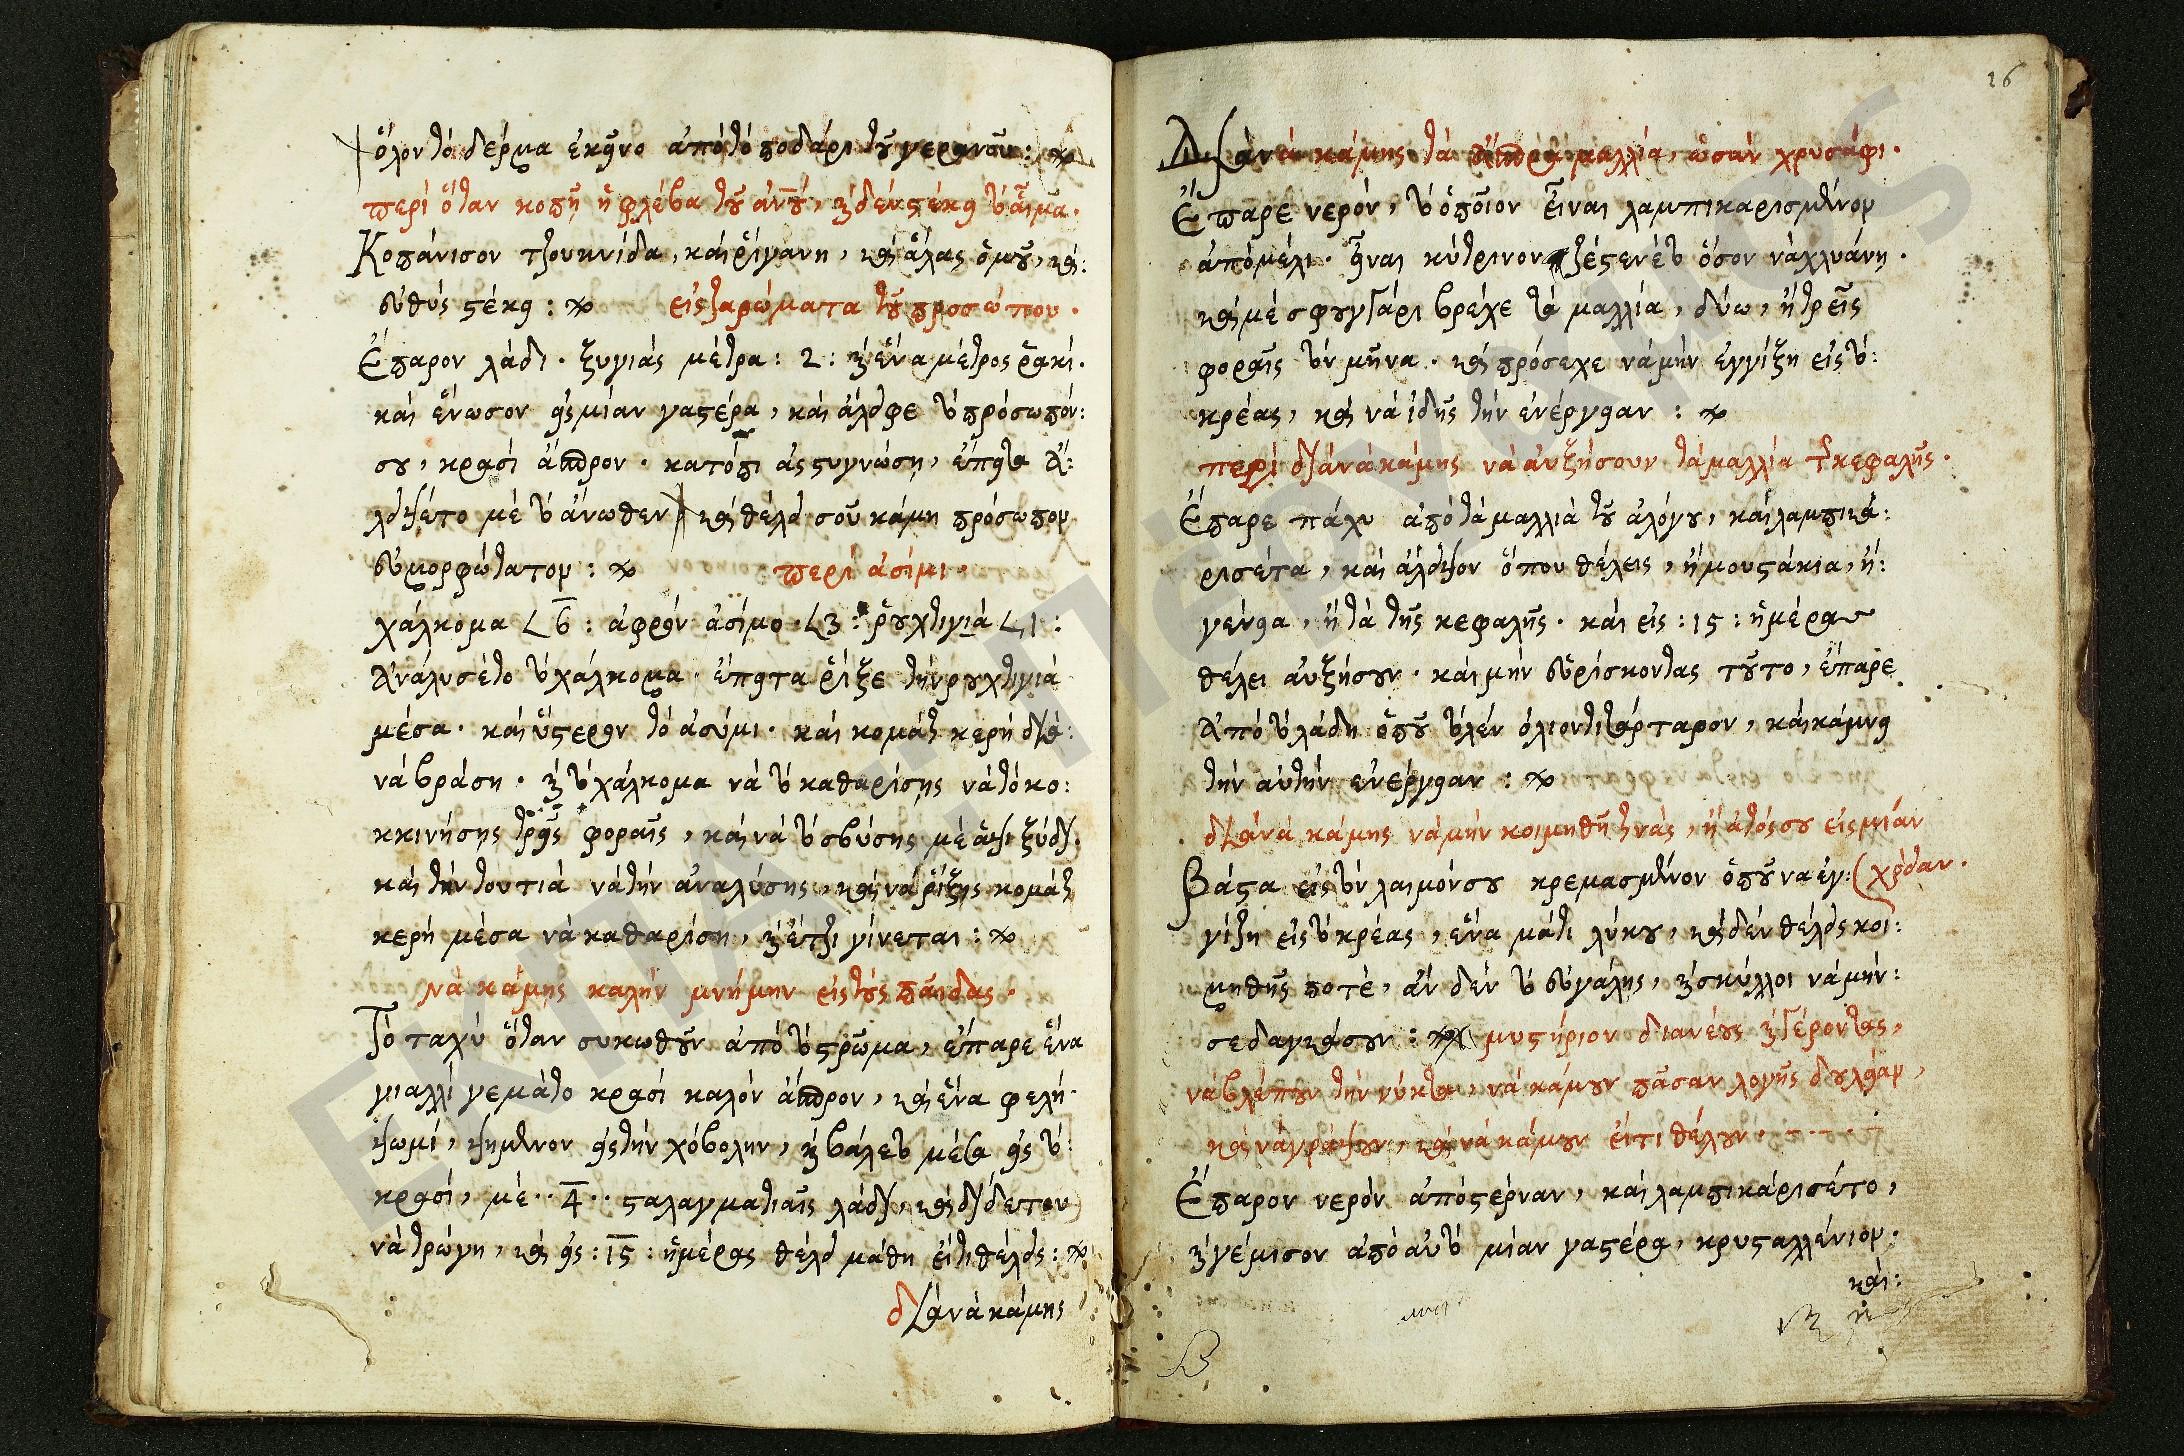 ὅλον τὸ δέρμα ἐκεῖνο ἀπὸ τὸ ποδάρι τοῦ γερανοῦ:
περὶ ὅταν κοπῇ ἡ φλέβα τοῦ ἀνοῦ, καὶ δὲν στέκει τὸ αἷμα.
Κοπάνισον τζουκνίδα, καὶ ρίγανη, καὶ ἅλας ὁμοῦ, καὶ:
εὐθὺς στέκει: εἰς ζαρώματα τοῦ προσώπου.
Ἔπαρον λάδι. ξυγιᾶς μέτρα: 2: καὶ ἕνα μέτρος ρακί.
καὶ ἕνωσον εἰς μίαν γαστέρα, καὶ ἄλειφε τὸ πρόσωπόν:
σου, κρασὶ ἄσπρον. κατόπι ἂς στυγνώσῃ, ἔπειτα ἄ:
λειψέ το μὲ τὸ ἄνωθεν καὶ θέλει σοῦ κάμη πρόσωπον
εὐμορφώτατον: περὶ ἀσίμι.
χάλκομα ∠ 6: ἀφρὸν ἀσίμο ∠ 3: ρουχτιγιά ∠ 1:
Ἀνάλυσέ το τὸ χάλκομα. ἔπειτα ρίξε τὴν ρουχτιγιά
μέσα. καὶ ὕστερον τὸ ἀσύμι. καὶ κομάτι κερὴ διὰ:
νὰ βράση. καὶ τὸ χάλκομα νὰ τὸ καθαρίσης νὰ τὸ κο:
κκινήσης τρεῖς φοραῖς, καὶ νὰ τὸ σβύσης μὲ ἅψι ξύδι.
καὶ τὴν τουτιὰ νὰ τὴν ἀναλύσης, καὶ νὰ ρίξης κομάτι
κερὴ μέσα νὰ καθαρίση, καὶ ἔτζι γίνεται:
Νὰ κάμης καλὴν μνήμην εἰς τοὺς παῖδας.
Τὸ ταχὺ ὅταν συκωθοῦν ἀπὸ τὸ στρῶμα, ἔπαρε ἕνα
γιαλλὶ γεμάτο κρασὶ καλὸν ἄσπρον, καὶ ἕνα φελή
ψωμί, ψημένον εἰς τὴν χόβολην, καὶ βάλε τὸ μέσα εἰς τὸ:
κρασί, μὲ ·· 4 ·· σταλαγματιαῖς λάδι, καὶ δίδε του
νὰ τρώγη, καὶ εἰς: 15: ἡμέρας θέλει μάθη εἴτι θέλεις:
διὰ νὰ κάμης
26
Διὰ νὰ κάμης τὰ ἄσπρα μαλλία, ὡσὰν χρυσάφι.
Ἔπαρε νερόν, τὸ ὁποῖον εἶναι λαμπικαρισμένον
ἀπὸ μέλι. εἶναι κύτρινον ζέστενέ το ὅσον νὰ χλυάνη.
καὶ μὲ σφουγγάρι βρέχε τὰ μαλλία, δύω, ἢ τρεῖς
φοραῖς τὸν μῆνα. καὶ πρόσεχε νὰ μὴν ἐγγίξη εἰς τὸ:
κρέας, καὶ νὰ ἰδῆς τὴν ἐνέργειαν:
περὶ διὰ νὰ κάμης νὰ αὐξήσουν τὰ μαλλία τῆς κεφαλῆς.
Ἔπαρε πάχυ ἀπὸ τὰ μαλλιὰ τοῦ ἀλόγου, καὶ λαμπικά:
ρισέ τα, καὶ ἄλειψον ὅπου θέλεις, ἢ μουστάκια, ἢ:
γένεια, ἢ τὰ τῆς κεφαλῆς. καὶ εἰς: 15: ἡμέρας
θέλει αὐξήσουν. καὶ μὴν εὑρίσκοντας τοῦτο, ἔπαρε
Ἀπὸ τὸ λάδη ὁποῦ τὸ λὲν ὄλιον τιτάρταρον, καὶ κάμνει
τὴν αὐτὴν ἐνέργειαν:
διὰ νὰ κάμης νὰ μὴν κοιμηθῇ τινάς, ἢ ἀτός σου εἰς μίαν
χρείαν.
Βάστα εἰς τὸν λαιμόν σου κρεμασμένον ὁποῦ να ἐγ:
γίζη εἰς τὸ κρέας, ἕνα μάτι λύκου, καὶ δὲν θέλεις κοι:
μηθῆς ποτέ, ἂν δὲν τὸ εὐγάλης, καὶ σκύλλοι νὰ μήν:
σε δαγκάσουν: μυστήριον διὰ νέους καὶ γέροντας,
νὰ βλέπουν τὴν νύκτα, νὰ κάμουν πᾶσαν λογῆς δουλείαν,
καὶ νὰ γράψουν, καὶ νὰ κάμουν εἴτι θέλουν.
Ἔπαρον νερὸν ἀπὸ στέρναν, καὶ λαμπικάρισέ το,
καὶ γέμισον ἀπὸ αὐτὸ μίαν γαστέρα, κρυσταλλένιον.
καὶ:
ΕΚΠΑ - ΠΕΡΓΑΜΟΣ